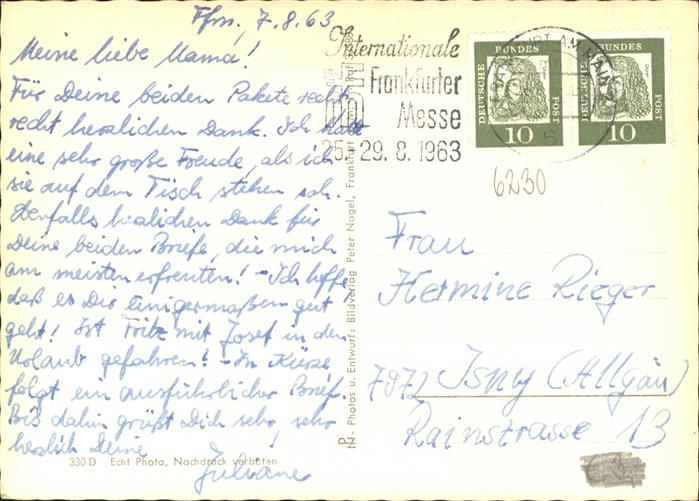 Ffm, 7.8.63
Meine liebe Mama!
Für Deine beiden Pakete recht
recht herzlichen Dank. Ich hatte
eine sehr große Freude, als ich
sie auf dem Tisch stehen sah.
Ebenfalls herzlichen Dank für
Deine beiden Briefe, die mich
am meisten erfreuten! - Ich hoffe
daß es Dir einigermaßen gut
geht! Ist Fritz mit Josef in den
Urlaub gefahren? - In Kürze
folgt ein ausführlicher Brief.
Bis dahin grüßt Dich sehr, sehr
herzlich Deine
Juliane
330 D Echt Photo, Nachdruck verboten
Photos u. Entwurf: Bildverlag Peter Nagel, Frankfurt
Internationale
Frankfurter
Messe
25.-29.8.1963
DEUTSCHE BUNDES POST
10
DEUTSCHE BUNDES POST
10
6230
Frau
Hermine Rieger
7972 Isny (Allgäu)
Rainstrasse 13